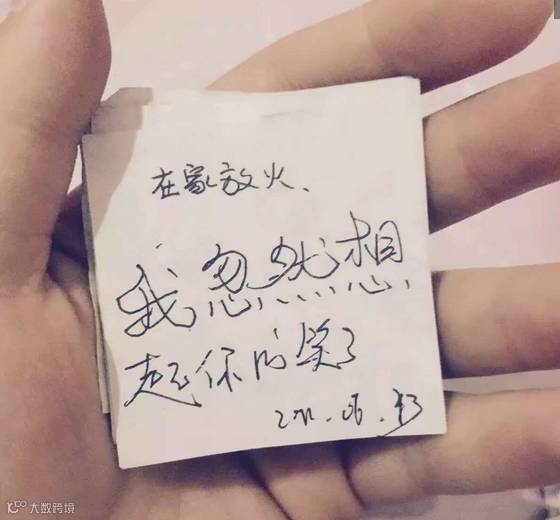 在家放火、
我忽然想
起你的笑了
大数跨境